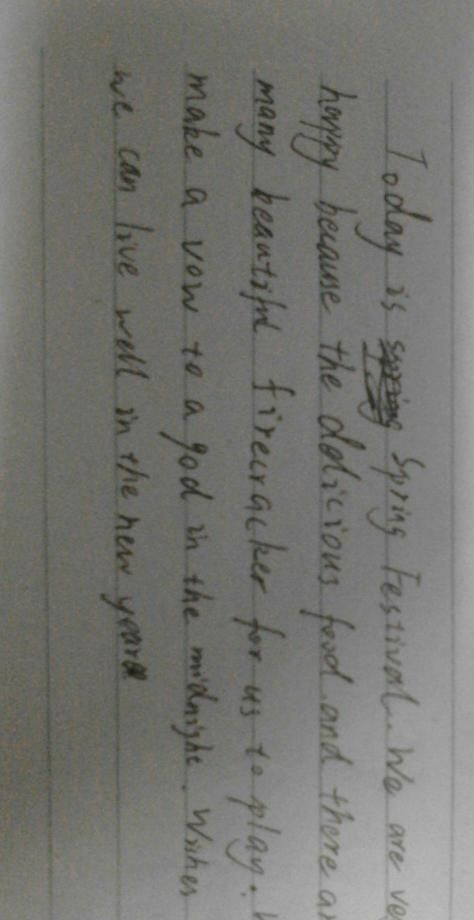 Today is Spring Festival. We are
happy because the delicious food and there
many beautiful firecracker for us to play.
make a vow to a god in the midnight. Wishes
we can live well in the new year